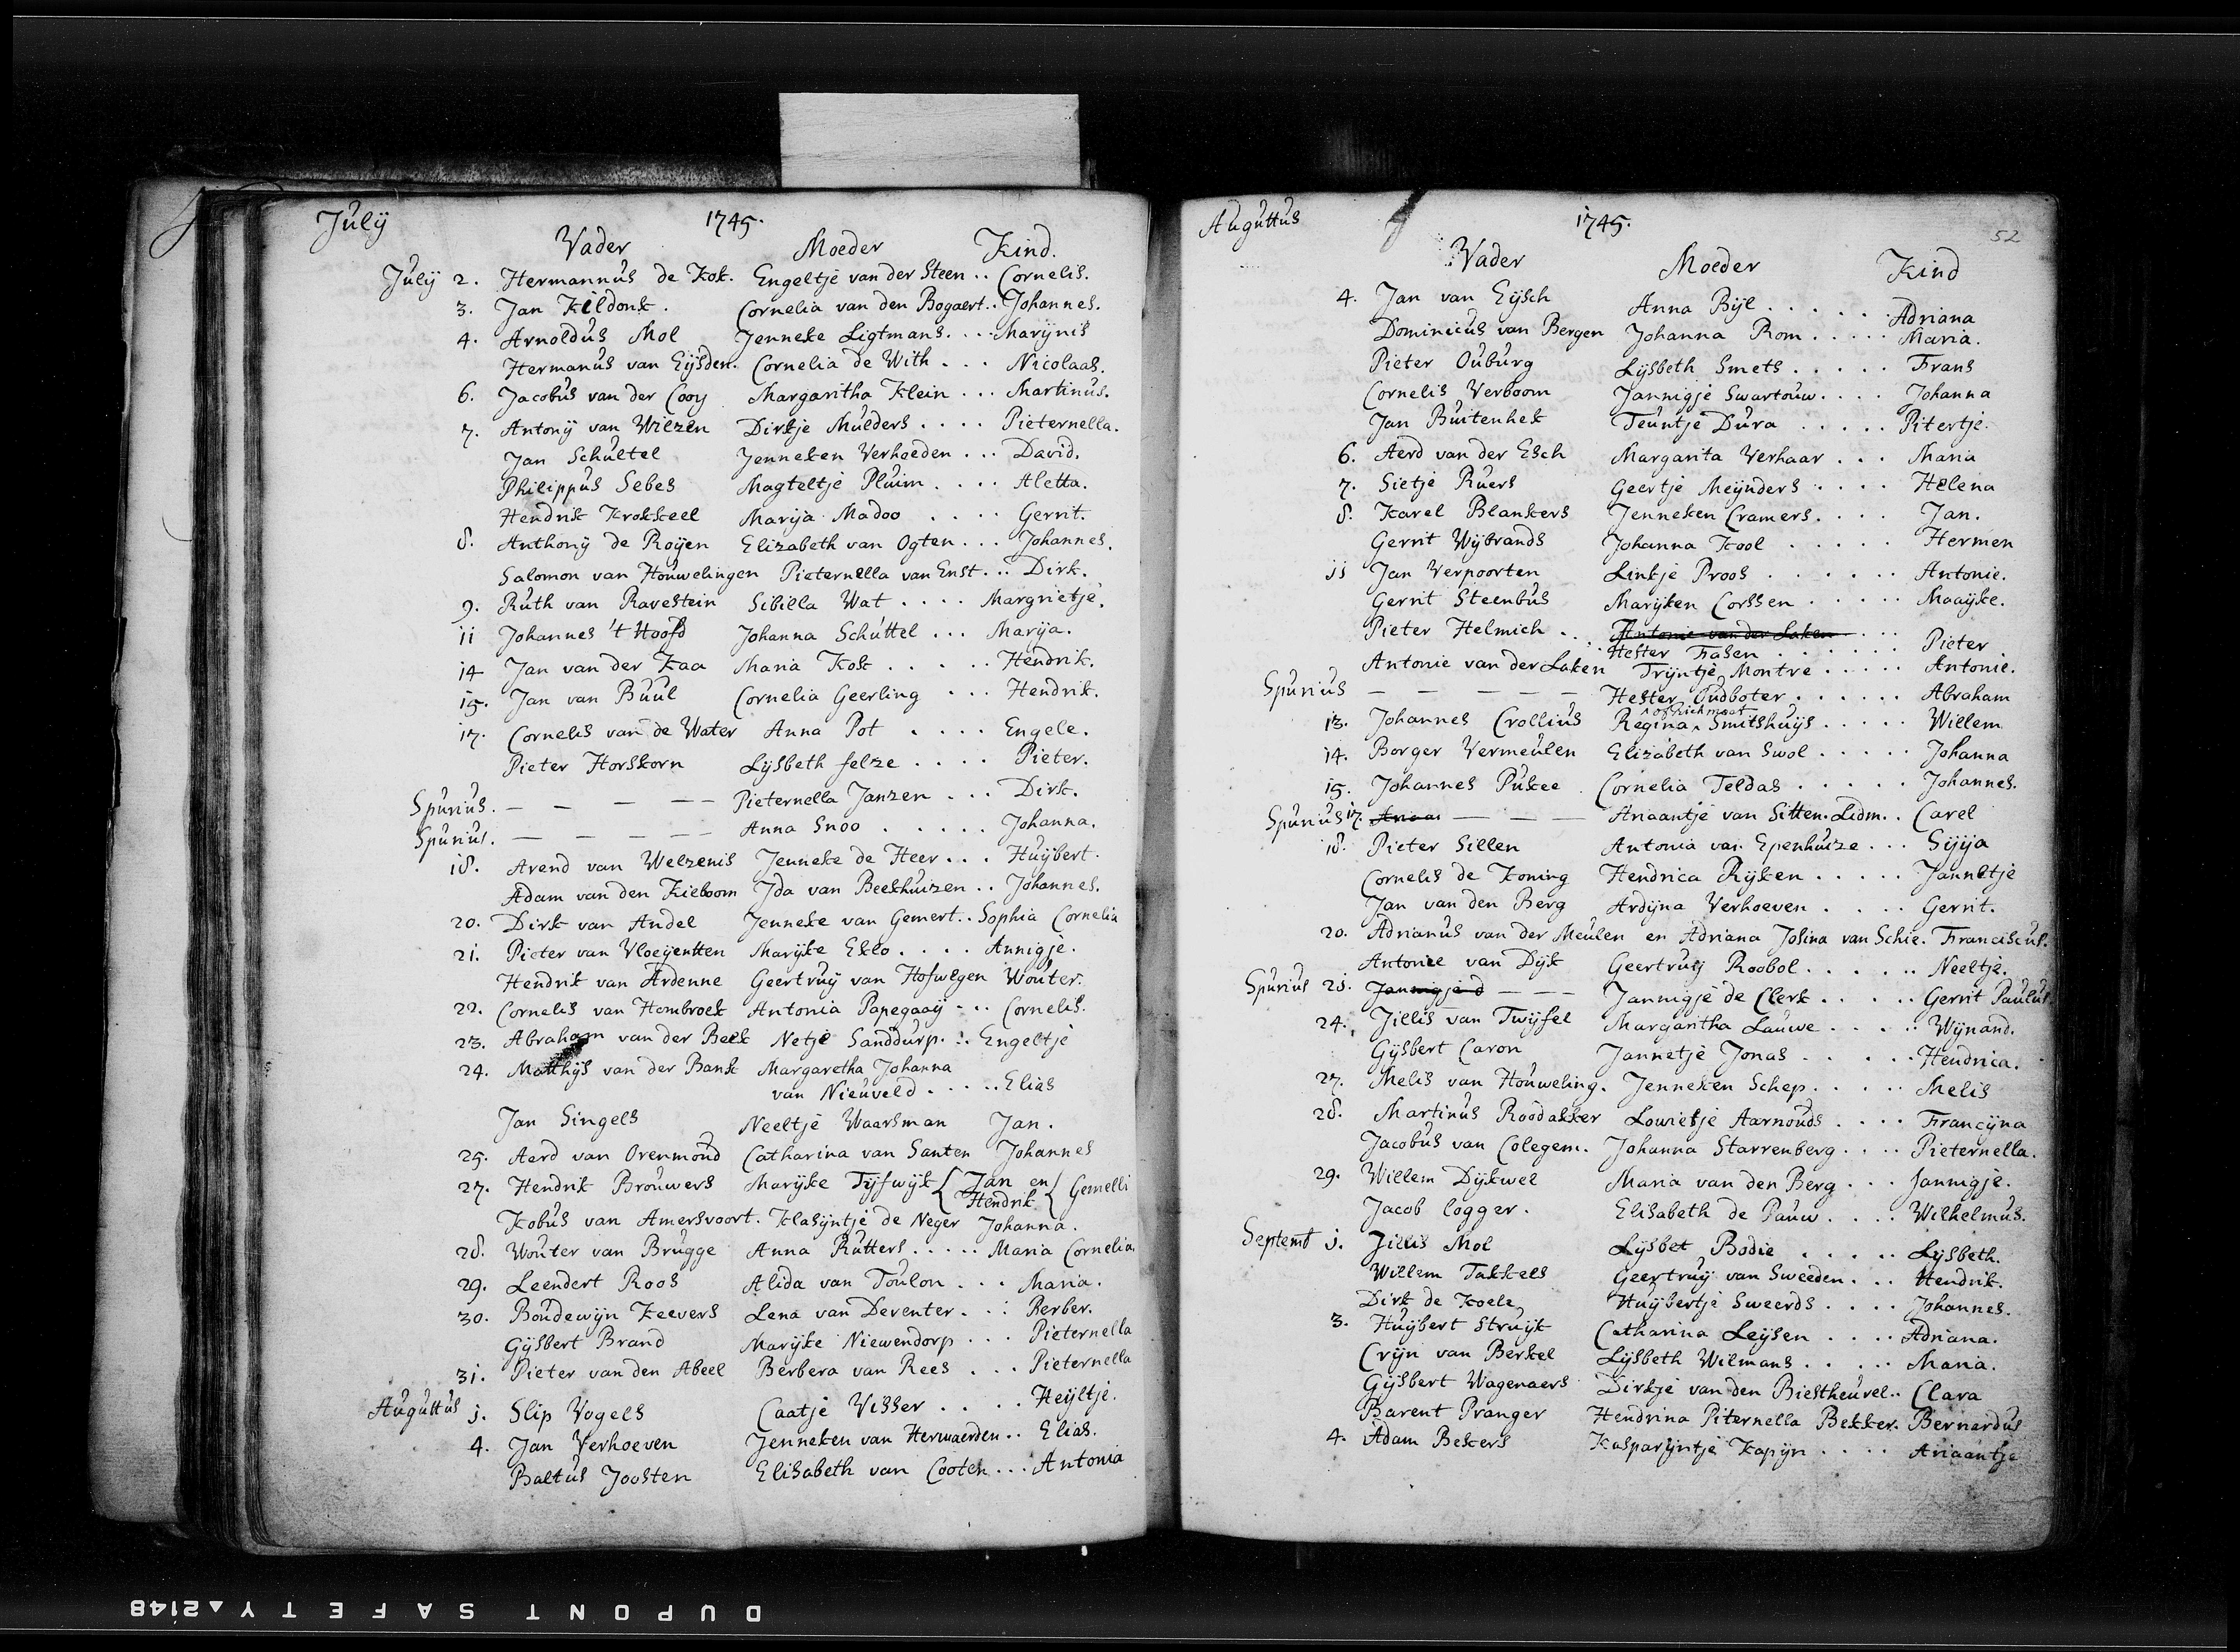 July 1745.
Vader Moeder Kind.
July 2. Hermannus de Kok. Engeltje van der Steen .. Cornelis.
3. Jan Kildonk. Cornelia van den Bogaert .. Johannes.
4. Arnoldus Mol Jenneke Ligtmans. ... Marijnis
Hermanus van Eijsden. Cornelia de With ... Nicolaas.
6. Jacobus van der Cooy Margaritha Klein ... Martinus.
7. Antonij van Wilzen Dirkje Mulders .... Pieternella.
Jan Schultel Jenneken Verhoeden ... David.
Philippus Sebes Magteltje Pluim .... Aletta.
Hendrik Krokkeel Marija Madoo .... Gerrit.
8. Anthonij de Roijen Elizabeth van Ogten ... Johannes.
Salomon van Houwelingen Pieternella van Enst ... Dirk.
9. Ruth van Ravestein Sibilla Wat .... Margrietje.
11 Johannes 't Hoofd Johanna Schuttel ... Marija.
14 Jan van der Kaa Maria Kok ..... Hendrik.
15. Jan van Buul Cornelia Geerling ... Hendrik.
17. Cornelis van de Water Anna Pot .... Engele.
Pieter Horskorn Lijsbeth felze .... Pieter.
Spurius. — — — — — Pieternella Janzen ... Dirk.
Spurius. — — — — — Anna Snoo ..... Johanna.
18. Arend van Welzenis Jenneke de Heer ... Huijbert.
Adam van den Kieboom Ida van Beekhuizen .. Johannes.
20. Dirk van Andel Jenneke van Gemert .. Sophia Cornelia
21. Pieter van Vloeijentten Marijke Eklo .... Annigje.
Hendrik van Ardenne Geertruij van Hofwegen Wouter.
22. Cornelis van Hombroek Antonia Papegaaij ... Cornelis.
23. Abraham van der Beek Netje Sanddurp. ... Engeltje
24. Matthijs van der Bank Margaretha Johanna
van Nieuveld ..... Elias
Jan Singels Neeltje Waarsman Jan.
25. Aerd van Orenmond Catharina van Santen Johannes
27. Hendrik Brouwers Marijke Tijfwijk { Jan en Hendrik { Gemelli
Kobus van Amersvoort. Klasijntje de Neger Johanna.
28. Wouter van Brugge Anna Rutters ..... Maria Cornelia.
29. Leendert Roos Alida van Toulon ... Maria.
30. Boudewijn Keevers Lena van Deventer ... Berber.
Gijsbert Brand Marijke Niewendorp ... Pieternella
31. Pieter van den Abeel Berbera van Rees ... Pieternella
Augustus 1. Slip Vogels Caatje Visser ..... Heijltje.
4. Jan Verhoeven Jenneken van Herwaerden .. Elias.
Baltus Joosten Elisabeth van Cooten ... Antonia
Augustus 1745. 52
Vader Moeder Kind
4. Jan van Eijsch Anna Bijl ...... Adriana
Dominicus van Bergen Johanna Rom ..... Maria.
Pieter Ouburg Lijsbeth Smets ..... Frans
Cornelis Verboom Jannigje Swartouw .... Johanna
Jan Buitenhek Teuntje Dura ..... Pitertje.
6. Aerd van der Esch Margarita Verhaar ... Maria
7. Sietje Ruers Geertje Meijnders .... Helena
8. Karel Blankers Jenneken Cramers .... Jan.
Gerrit Wijbrands Johanna Kool ..... Hermen
11 Jan Verpoorten Linkje Proos ...... Antonie.
Gerrit Steenbus Marijken Corssen ..... Maaijke.
Pieter Helmich ... Antonie van der Laken ...
Hester Fasen ...... Pieter
Antonie van der Laken Trijntje Montre ..... Antonie.
Spurius — — — — — Hester Pudboter ...... Abraham
13. Johannes Crollius Regina of Richmoet Smitshuijs ..... Willem
14. Borger Vermeulen Elizabeth van Swol ..... Johanna
15. Johannes Pukee Cornelia Teldas ..... Johannes.
Spurius 17. Ariaan — — — Ariaantje van Sitten. Lidm. . Carel
18. Pieter Sillen Antonia van Epenhuize ... Gijija
Cornelis de Koning Hendrica Rijken ..... Jannetje
Jan van den Berg Ardijna Verhoeven .... Gerrit.
20. Adrianus van der Meulen en Adriana Josina van Schie. Franciscus.
Antonie van Dijk Geertruij Roobol ...... Neeltje.
Spurius 21. Jannigje d — — — Jannigje de Clerk ..... Gerrit Paulus
24. Jillis van Twijfel Margaritha Lauwe ..... Wijnand.
Gijsbert Caron Jannetje Jonas ...... Hendrica.
27. Melis van Houweling. Jenneken Schep ..... Melis
28. Martinus Roodakker Lowietje Aarnouds .... Francijna
Jacobus van Colegem. Johanna Starrenberg .... Pieternella.
29. Willem Dijkwel Maria van den Berg ... Jannigje.
Jacob Cogger. Elisabeth de Pauw .... Wilhelmus.
Septemb 1. Jillis Mol Lijsbet Bodie ..... Lijsbeth.
Willem Takkels Geertruij van Sweeden ... Hendrik.
Dirk de Koele Huijbertje Sweerds .... Johannes.
3. Huijbert Struijk Catharina Leijsen .... Adriana.
Crijn van Berkel Lijsbeth Wilmans ..... Maria.
Gijsbert Wagenaers Dirkje van den Biestheuvel .. Clara
Barent Pranger Hendrina Piternella Bekker. Bernardus
4. Adam Bekers Kasparijntje Kapijn .... Ariaantje
DUPONT SAFETY ▲ 2148